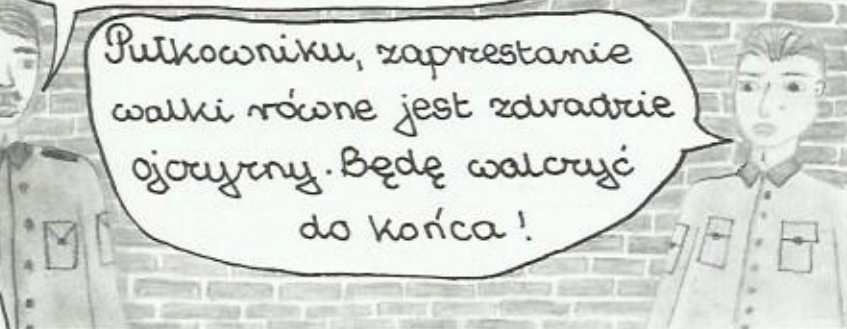 Pułkowniku, zaprzestanie
walki równe jest zdradzie
ojczyzny. Będę walczyć
do końca!